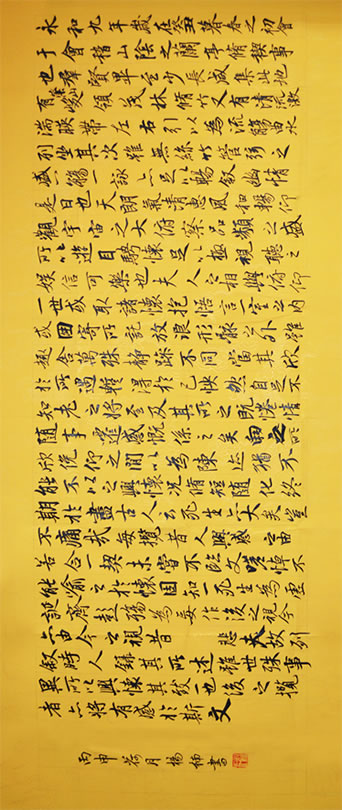 永和九年歲在癸丑暮春之初會
于會稽山陰之蘭亭脩禊事
也羣賢畢至少長咸集此地
有崇山峻領茂林脩竹又有清流激
湍暎帶左右引以為流觴曲水
列坐其次雖無絲竹管弦之
盛一觴一詠亦足以暢敘幽情
是日也天朗氣清惠風和暢仰
觀宇宙之大俯察品類之盛
所以遊目騁懷足以極視聽之
娛信可樂也夫人之相與俯仰
一世或取諸懷抱悟言一室之内
或因寄所託放浪形骸之外雖
趣舍萬殊靜躁不同當其欣
於所遇暫得於己怏然自足不
知老之將至及其所之既惓情
隨事遷感慨係之矣向之所
欣俛仰之間以為陳迹猶不
能不以之興懷況脩短隨化終
期於盡古人云死生亦大矣豈
不痛哉每攬昔人興感之由
若合一契未嘗不臨文嗟悼不
能喻之於懷固知一死生為虛
誕齊彭殤為妄作後之視今
亦由今之視昔 悲夫故列
敘時人錄其所述雖世殊事
異所以興懷其致一也後之攬
者亦將有感於斯文
丙申荷月楊書